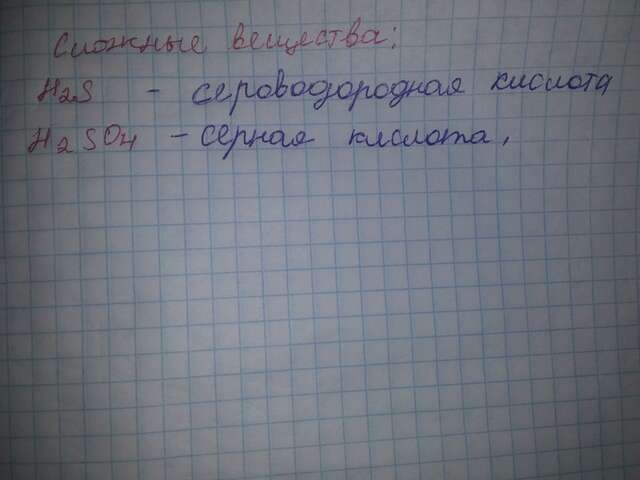 Сложные вещества:
H₂S - сероводородная кислота
H₂SO₄ - серная кислота,